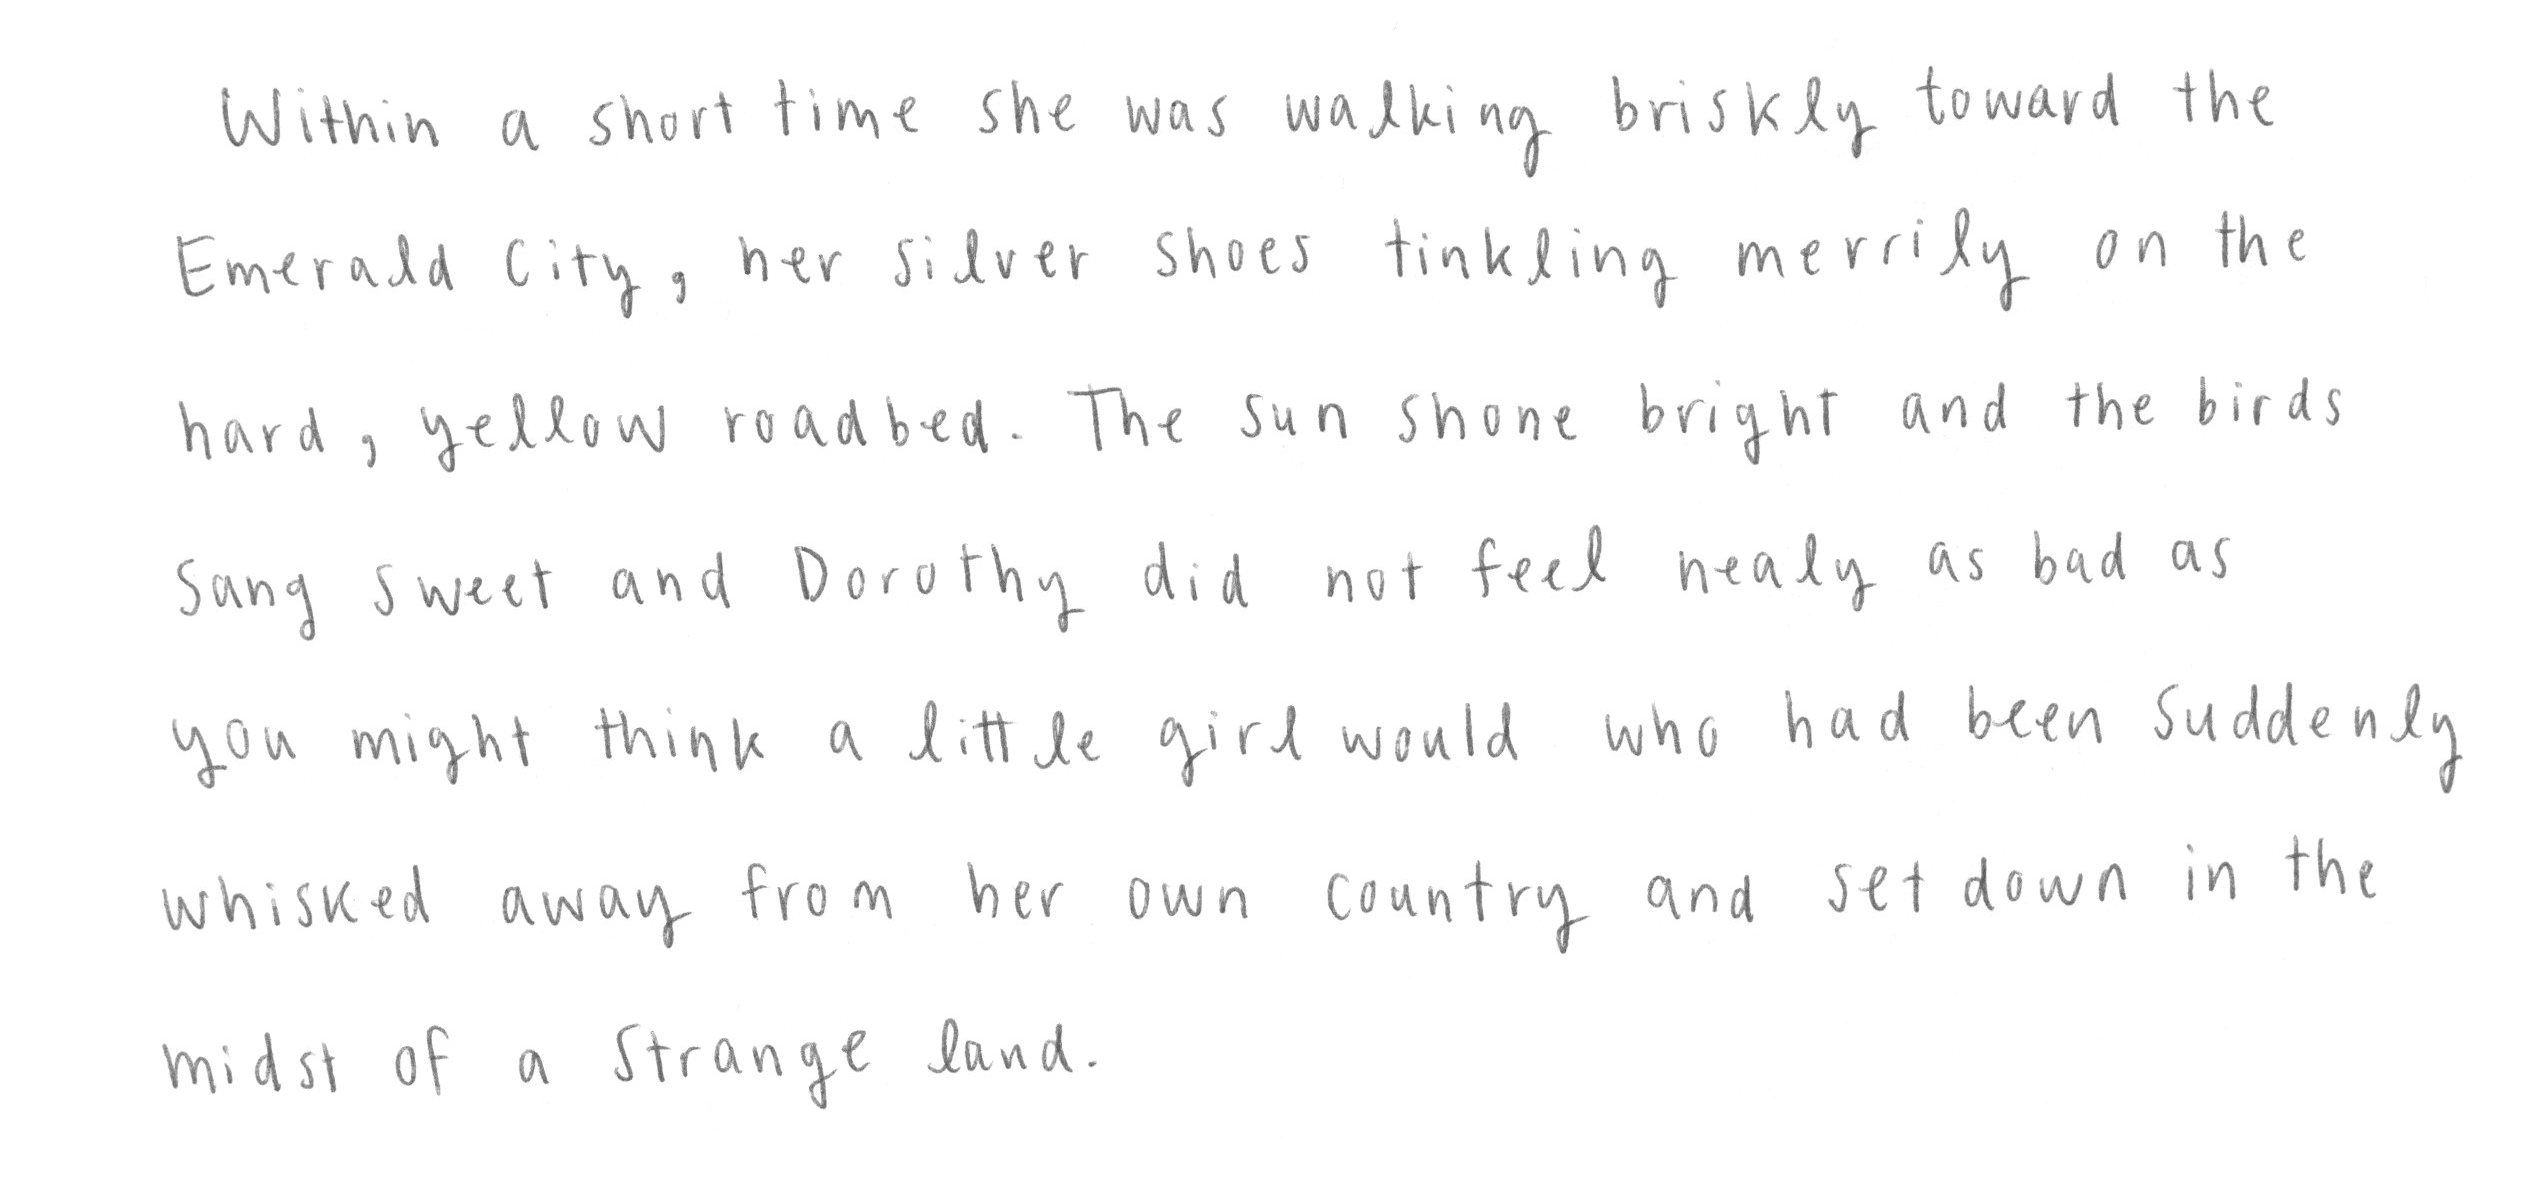 Within a short time she was walking briskly toward the
Emerald City, her silver shoes tinkling merrily on the
hard, yellow roadbed. The sun shone bright and the birds
sang sweet and Dorothy did not feel nealy as bad as
you might think a little girl would who had been suddenly
whisked away from her own country and set down in the
midst of a strange land.